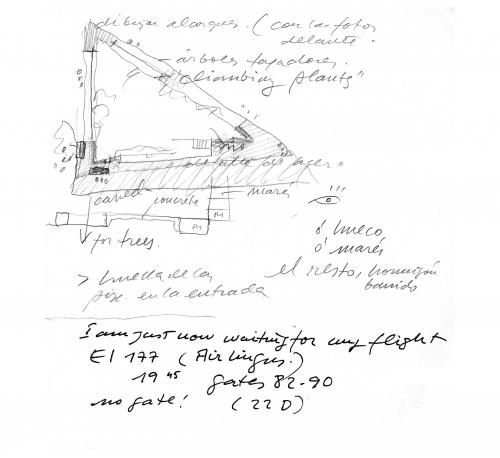 dibujar alarques. (con las fotos
delante.
- árboles tajadores.
"climbing plants"
detalle de acero
concrete
marés
M
M
for trees.
ó hueco
ó marés
el resto, hormigón
> huella de las
pix. en la entrada
I am just now waiting for my flight
EI 177 (Air lingus.)
19 45 gates 82-90
no gate! (22 D)